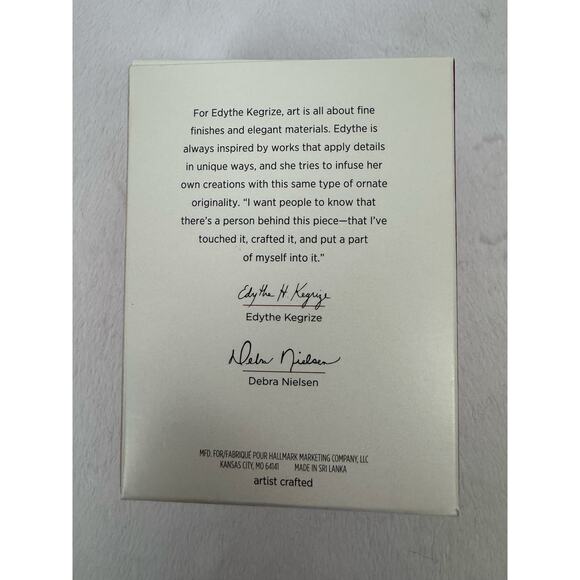 For Edythe Kegrize, art is all about fine
finishes and elegant materials. Edythe is
always inspired by works that apply details
in unique ways, and she tries to infuse her
own creations with this same type of ornate
originality. “I want people to know that
there’s a person behind this piece—that I’ve
touched it, crafted it, and put a part
of myself into it.”
Edythe H. Kegrize
Edythe Kegrize
Debra Nielsen
Debra Nielsen
MFD. FOR/FABRIQUÉ POUR HALLMARK MARKETING COMPANY, LLC
KANSAS CITY, MO 64141 MADE IN SRI LANKA
artist crafted